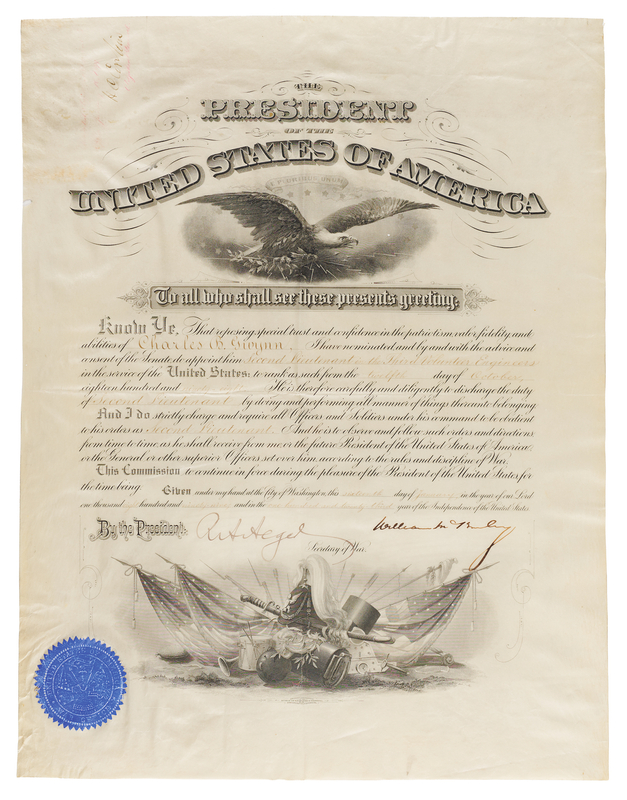 THE
PRESIDENT
OF THE
UNITED STATES OF AMERICA
E PLURIBUS UNUM
To all who shall see these presents greeting:
Know Ye, That reposing special trust and confidence in the patriotism, valor, fidelity and
abilities of Charles B. I have nominated and by and with the advice and
consent of the Senate do appoint him Second Lieutenant in the Third Volunteer Engineers
in the service of the United States: to rank as such from the twelfth day of October
eighteen hundred and He is therefore carefully and diligently to discharge the duty
of Second Lieutenant by doing and performing all manner of things thereunto belonging.
And I do strictly charge and require all Officers and Soldiers under his command to be obedient
to his orders as Second Lieutenant. And he is to observe and follow such orders and directions
from time to time, as he shall receive from me or the future President of the United States of America,
or the General or other superior Officers set over him, according to the rules and discipline of War.
This Commission to continue in force during the pleasure of the President of the United States for
the time being.
Given under my hand at the city of Washington, this day of January in the year of our Lord
one thousand hundred and and in the year of the Independence of the United States.
By the President: William McKinley
Secretary of War.